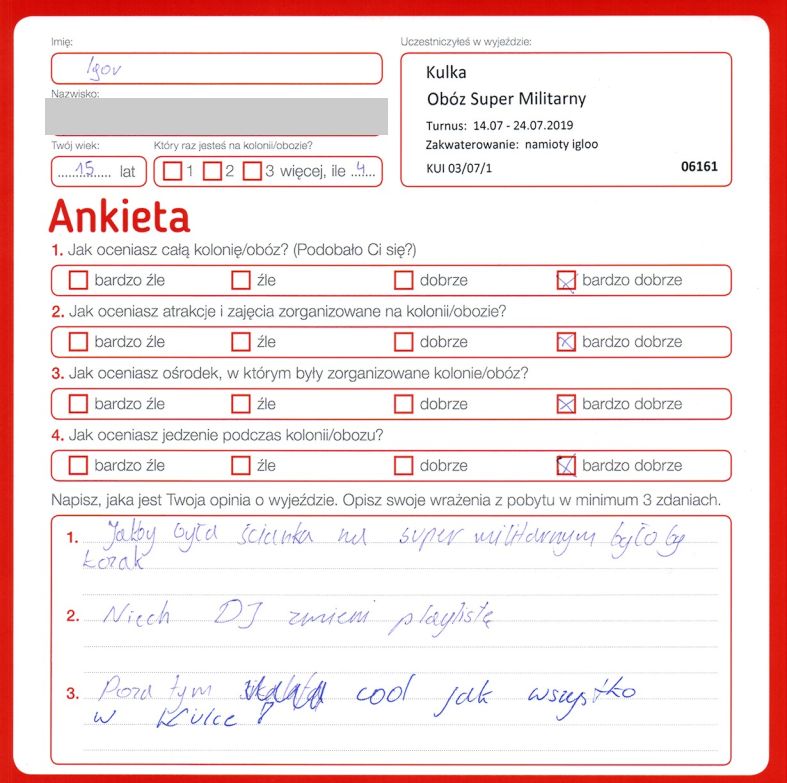 Imię:
Igor
Nazwisko:
Twój wiek:
15 lat
Który raz jesteś na kolonii/obozie?
1 2 3 więcej, ile 4
Uczestniczyłeś w wyjeździe:
Kulka
Obóz Super Militarny
Turnus: 14.07 - 24.07.2019
Zakwaterowanie: namioty igloo
KUI 03/07/1 06161
Ankieta
1. Jak oceniasz całą kolonię/obóz? (Podobało Ci się?)
bardzo źle źle dobrze bardzo dobrze
2. Jak oceniasz atrakcje i zajęcia zorganizowane na kolonii/obozie?
bardzo źle źle dobrze bardzo dobrze
3. Jak oceniasz ośrodek, w którym były zorganizowane kolonie/obóz?
bardzo źle źle dobrze bardzo dobrze
4. Jak oceniasz jedzenie podczas kolonii/obozu?
bardzo źle źle dobrze bardzo dobrze
Napisz, jaka jest Twoja opinia o wyjeździe. Opisz swoje wrażenia z pobytu w minimum 3 zdaniach.
1. Jakby była ścianka na super militarnym było by
kozak
2. Niech DJ zmieni playlistę
3. Poza tym cool jak wszystko
w Kulce